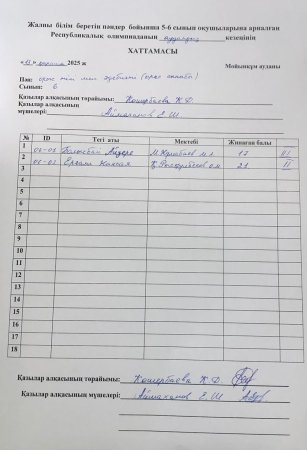 Жалпы білім беретін пәндер бойынша 5-6 сынып оқушыларына арналған
Республикалық олимпиаданың аудандық кезеңінің
ХАТТАМАСЫ
2025 ж Мойынқұм ауданы
Пән: орыс тілі мен әдебиеті
Сынып: 6
Қазылар алқасының төрайымы: Кошербаева К Д.
Қазылар алқасының
мүшелері: Аймаханов Е. Ш.
№ ID Тегі аты Мектебі Жинаған балы
1 06-01 17 III
2 06-03 21 II
3
4
5
6
7
8
9
10
11
12
13
14
15
16
17
18
Қазылар алқасының төрайымы: Кошербаева К Д
Қазылар алқасының мүшелері: Аймаханов Е. Ш